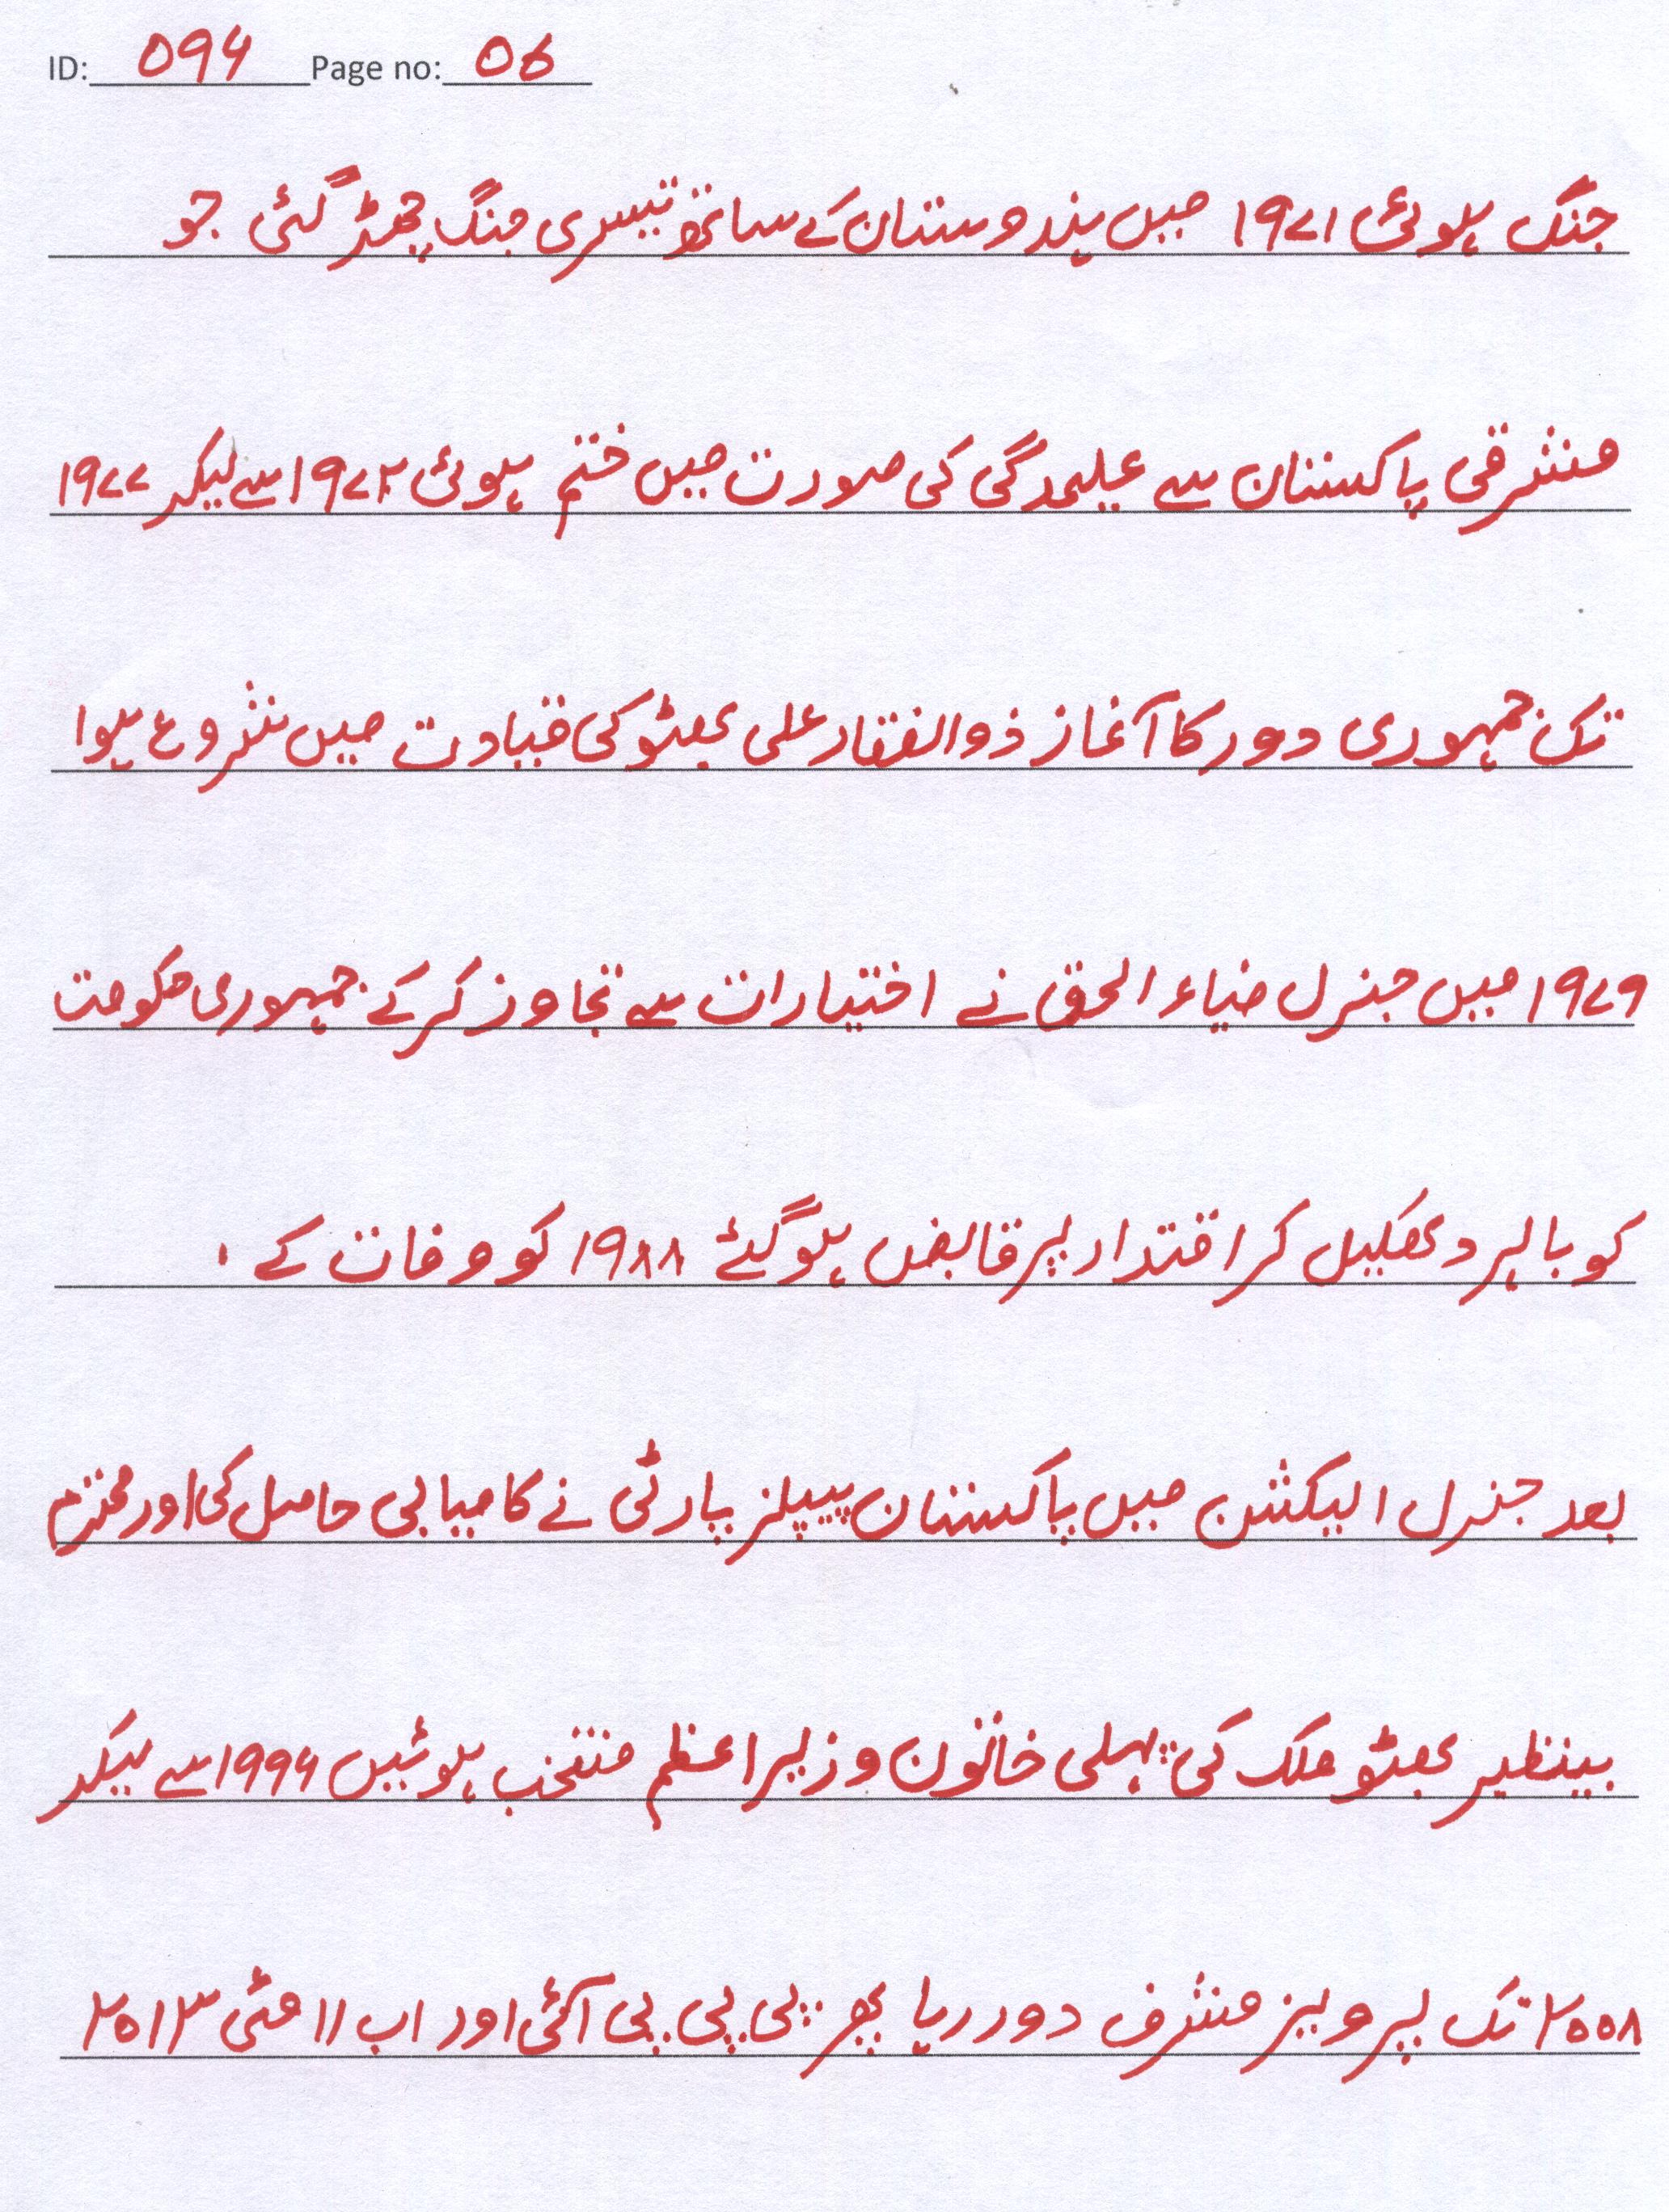 ID: 094 Page no: 06
جنگ ہوئی ۱۹۷۱ میں ہندوستان کے ساتھ تیسری جنگ چھڑ گئی جو
مشرقی پاکستان سے علیحدگی کی صورت میں ختم ہوئی ۱۹۷۲ سے لیکر ۱۹۷۷
تک جمہوری دور کا آغاز ذوالفقار علی بھٹو کی قیادت میں شروع ہوا
۱۹۷۹ میں جنرل ضیاء الحق نے اختیارات سے تجاوز کر کے جمہوری حکومت
کو باہر دھکیل کر اقتدار پر قابض ہو گئے ۱۹۸۸ کو وفات کے
بعد جنرل الیکشن میں پاکستان پیپلز پارٹی نے کامیابی حاصل کی اور محترم
بینظیر بھٹو ملک کی پہلی خاتون وزیراعظم منتخب ہوئیں ۱۹۹۶ سے لیکر
۲۰۰۸ تک پرویز مشرف دور رہا پھر پی پی پی آئی اور اب ۱۱ مئی ۲۰۱۳